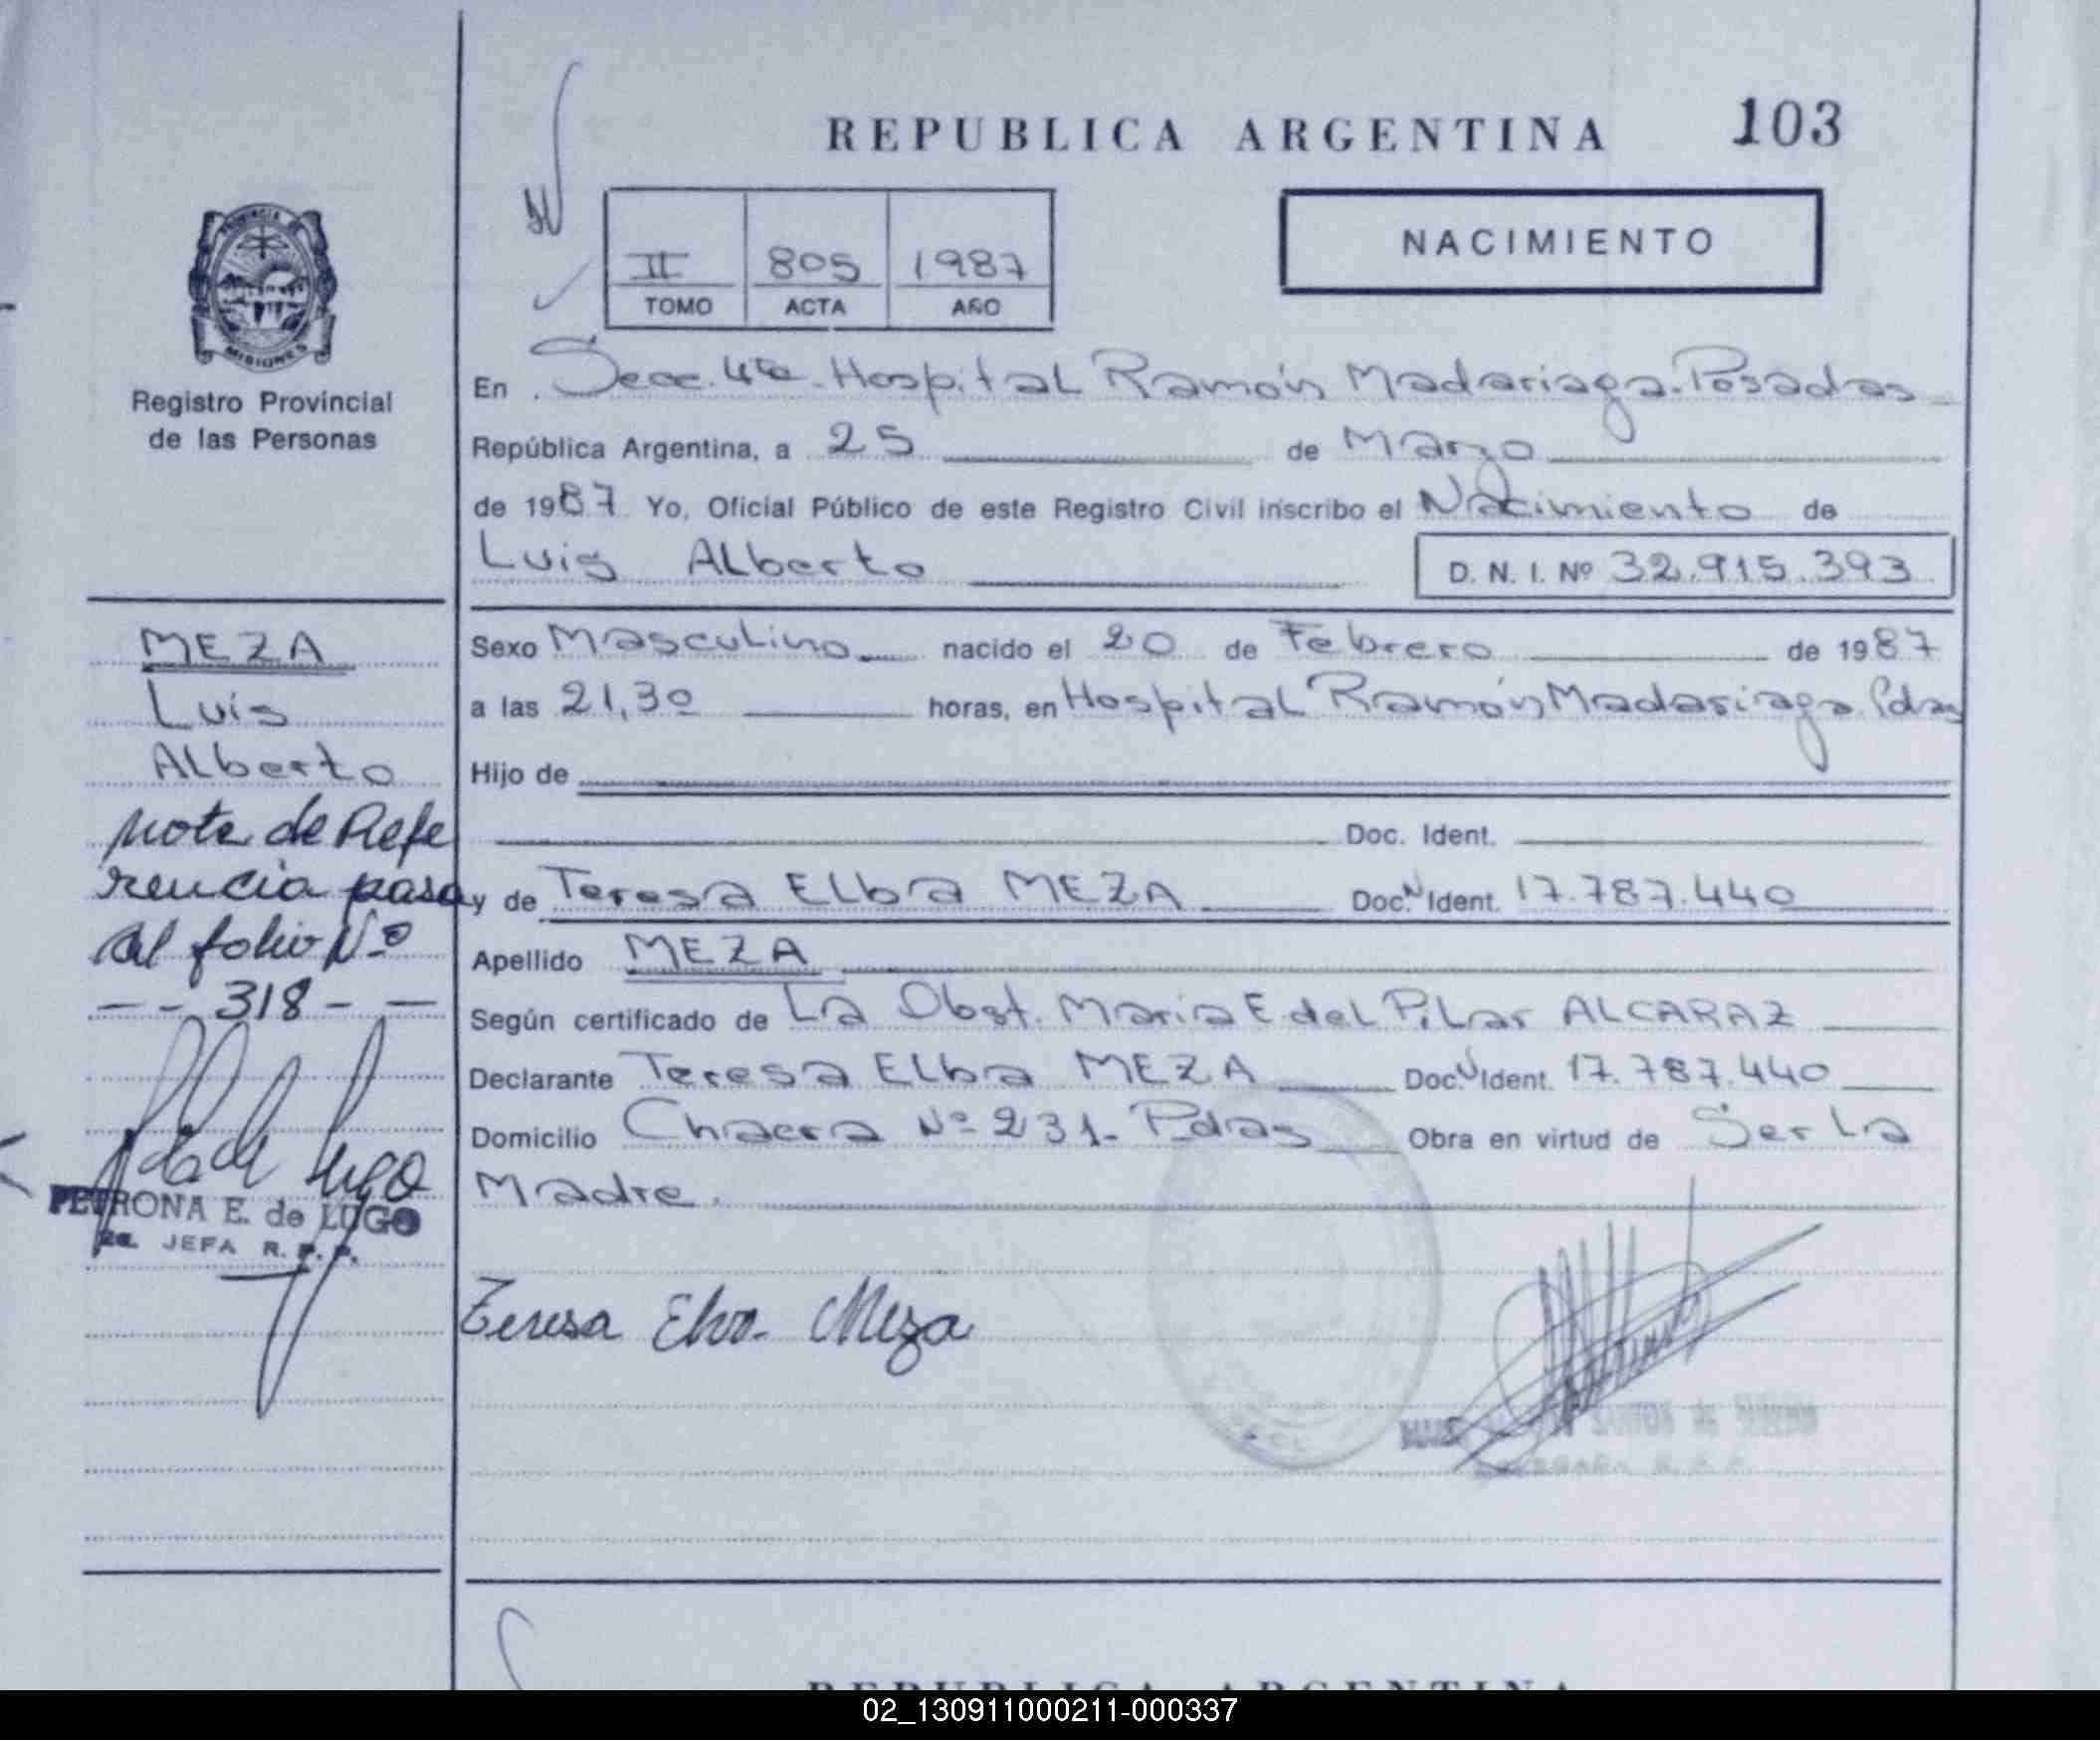 REPUBLICA ARGENTINA 103
II 805 1987
TOMO ACTA AÑO
NACIMIENTO
PROVINCIA DE
MISIONES
Registro Provincial
de las Personas
En Secc. 4ta. Hospital Ramón Madariaga. Posadas
República Argentina, a 25 de Marzo
de 1987 Yo, Oficial Público de este Registro Civil inscribo el Nacimiento de
Luis Alberto D. N. I. Nº 32.915.393
Sexo Masculino nacido el 20 de Febrero de 1987
a las 21,30 horas, en Hospital Ramón Madariaga. Pdas
Hijo de
Doc. Ident.
y de Teresa Elba MEZA Doc. N Ident. 17.787.440
Apellido MEZA
Según certificado de La Obst. Maria E. del Pilar ALCARAZ
Declarante Teresa Elba MEZA Doc. N Ident. 17.787.440
Domicilio Chacra Nº 231- Pdas Obra en virtud de Ser La
Madre.
Teresa Elva Meza
MEZA
Luis
Alberto
Nota de Refe
rencia pasa
al folio Nº
- - 318 - -
PETRONA E. de LUGO
2a. JEFA R. P. P.
REPUBLICA ARGENTINA
02_130911000211-000337